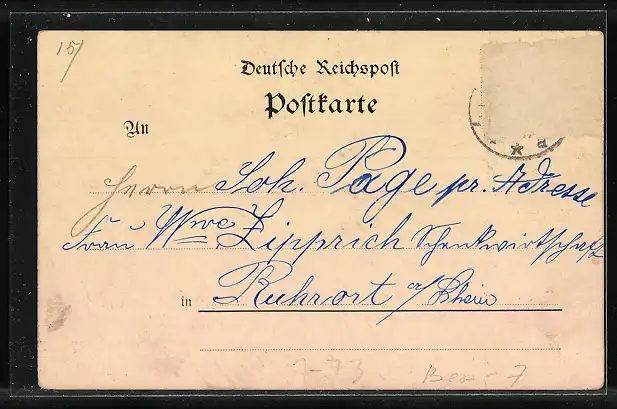 15/
Deutsche Reichspost
Postkarte
An
Herrn Joh. Page pr. Adresse
Frau Wwe. Zipprich Schenkwirtschaft
in Ruhrort a/Rhein
7-73 Bez - 7